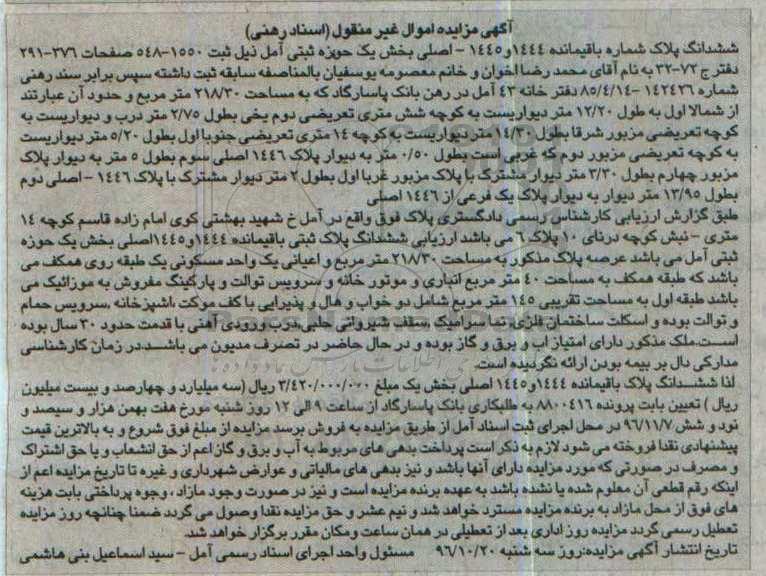 آگهی مزایده اموال غیر منقول (اسناد رهنی)
ششدانگ پلاک شماره باقیمانده ۱۴۴۴و۱۴۴۵ - اصلی بخش یک حوزه ثبتی آمل ذیل ثبت ۱۵۵۰-۵۴۸ صفحات ۳۷۶-۲۹۱
دفتر ج ۷۲-۳۲ به نام آقای محمد رضا اخوان و خانم معصومه یوسفیان بالمناصفه سابقه ثبت داشته سپس برابر سند رهنی
شماره ۱۴۲۴۳۶-۸۵/۴/۱۴ دفتر خانه ۴۳ آمل در رهن بانک پاسارگاد که به مساحت ۲۱۸/۳۰ متر مربع و حدود آن عبارتند
از شمالا اول به طول ۱۲/۲۰ متر دیواریست به کوچه شش متری تعریضی دوم یخی بطول ۲/۷۵ متر درب و دیواریست به
کوچه تعریضی مزبور شرقا بطول ۱۴/۳۰ متر دیواریست به کوچه ۱۴ متری تعریضی جنوبا اول بطول ۵/۲۰ متر دیواریست
به کوچه تعریضی مزبور دوم که غربی است بطول ۰/۵۰ متر به دیوار پلاک ۱۴۴۶ اصلی سوم بطول ۵ متر به دیوار پلاک
مزبور چهارم بطول ۳/۳۰ متر دیوار مشترک با پلاک مزبور غربا اول بطول ۲ متر دیوار مشترک با پلاک ۱۴۴۶ - اصلی دوم
بطول ۱۳/۹۵ متر دیوار به دیوار پلاک یک فرعی از ۱۴۴۶ اصلی
طبق گزارش ارزیابی کارشناس رسمی دادگستری پلاک فوق واقع در آمل خ شهید بهشتی کوی امام زاده قاسم کوچه ۱۴
متری - نبش کوچه درنای ۱۰ پلاک ۶ می باشد ارزیابی ششدانگ پلاک ثبتی باقیمانده ۱۴۴۴و۱۴۴۵اصلی بخش یک حوزه
ثبتی آمل می باشد عرصه پلاک مذکور به مساحت ۲۱۸/۳۰ متر مربع و اعیانی یک واحد مسکونی یک طبقه روی همکف می
باشد که طبقه همکف به مساحت ۴۰ متر مربع انباری و موتور خانه و سرویس توالت و پارکینگ مفروش به موزائیک می
باشد طبقه اول به مساحت تقریبی ۱۴۵ متر مربع شامل دو خواب و هال و پذیرایی با کف موکت ،اشپزخانه ،سرویس حمام
و توالت بوده و اسکلت ساختمان فلزی،نما سرامیک ،سقف شیروانی حلبی،درب ورودی آهنی با قدمت حدود ۳۰ سال بوده
است.ملک مذکور دارای امتیاز اب و برق و گاز بوده و در حال حاضر در تصرف مدیون می باشد.در زمان کارشناسی
مدارکی دال بر بیمه بودن ارائه نگردیده است.
لذا ششدانگ پلاک باقیمانده ۱۴۴۴و۱۴۴۵ اصلی بخش یک مبلغ ۳/۴۲۰/۰۰۰/۰۰۰ ریال (سه میلیارد و چهارصد و بیست میلیون
ریال ) تعیین بابت پرونده ۸۸۰۰۴۱۶ به طلبکاری بانک پاسارگاد از ساعت ۹ الی ۱۲ روز شنبه مورخ هفت بهمن هزار و سیصد و
نود و شش ۹۶/۱۱/۷ در محل اجرای ثبت اسناد آمل از طریق مزایده به فروش برسد مزایده از مبلغ فوق شروع و به بالاترین قیمت
پیشنهادی نقدا فروخته می شود لازم به ذکر است پرداخت بدهی های مربوط به آب و برق و گاز اعم از حق انشعاب و یا حق اشتراک
و مصرف در صورتی که مورد مزایده دارای آنها باشد و نیز بدهی های مالیاتی و عوارض شهرداری و غیره تا تاریخ مزایده اعم از
اینکه رقم قطعی آن معلوم شده یا نشده باشد به عهده برنده مزایده است و نیز در صورت وجود مازاد ، وجوه پرداختی بابت هزینه
های فوق از محل مازاد به برنده مزایده مسترد خواهد شد و نیم عشر و حق مزایده نقدا وصول می گردد ضمنا چنانچه روز مزایده
تعطیل رسمی گردد مزایده روز اداری بعد از تعطیلی در همان ساعت ومکان مقرر برگزار خواهد شد.
تاریخ انتشار آگهی مزایده:روز سه شنبه ۹۶/۱۰/۲۰ مسئول واحد اجرای اسناد رسمی آمل - سید اسماعیل بنی هاشمی